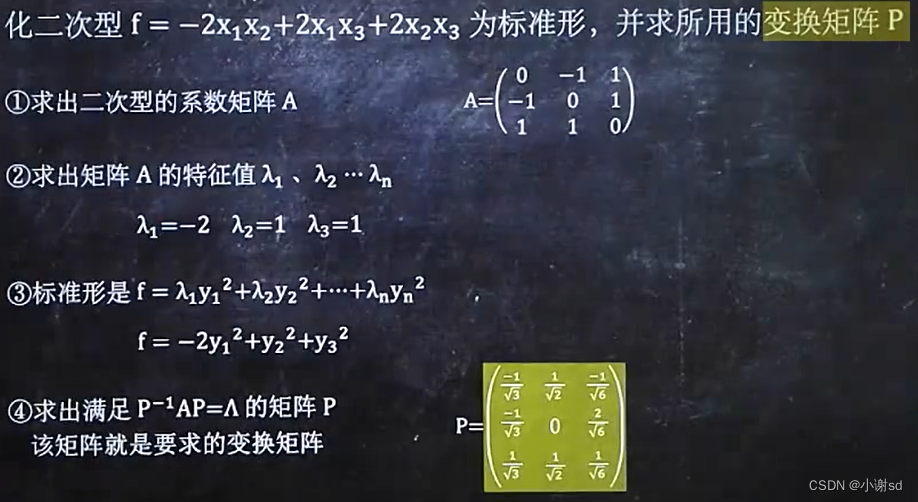 化二次型 f = −2x₁x₂+2x₁x₃+2x₂x₃ 为标准形，并求所用的变换矩阵 P
①求出二次型的系数矩阵 A A=( 0 −1 1
−1 0 1
1 1 0 )
②求出矩阵 A 的特征值 λ₁ 、λ₂ ⋯ λₙ
λ₁=−2 λ₂=1 λ₃=1
③标准形是 f = λ₁y₁²+λ₂y₂²+⋯+λₙyₙ²
f = −2y₁²+y₂²+y₃²
④求出满足 P⁻¹AP=Λ 的矩阵 P
该矩阵就是要求的变换矩阵
P=( −1/√3 1/√2 −1/√6
−1/√3 0 2/√6
1/√3 1/√2 1/√6 )
CSDN @小谢sd